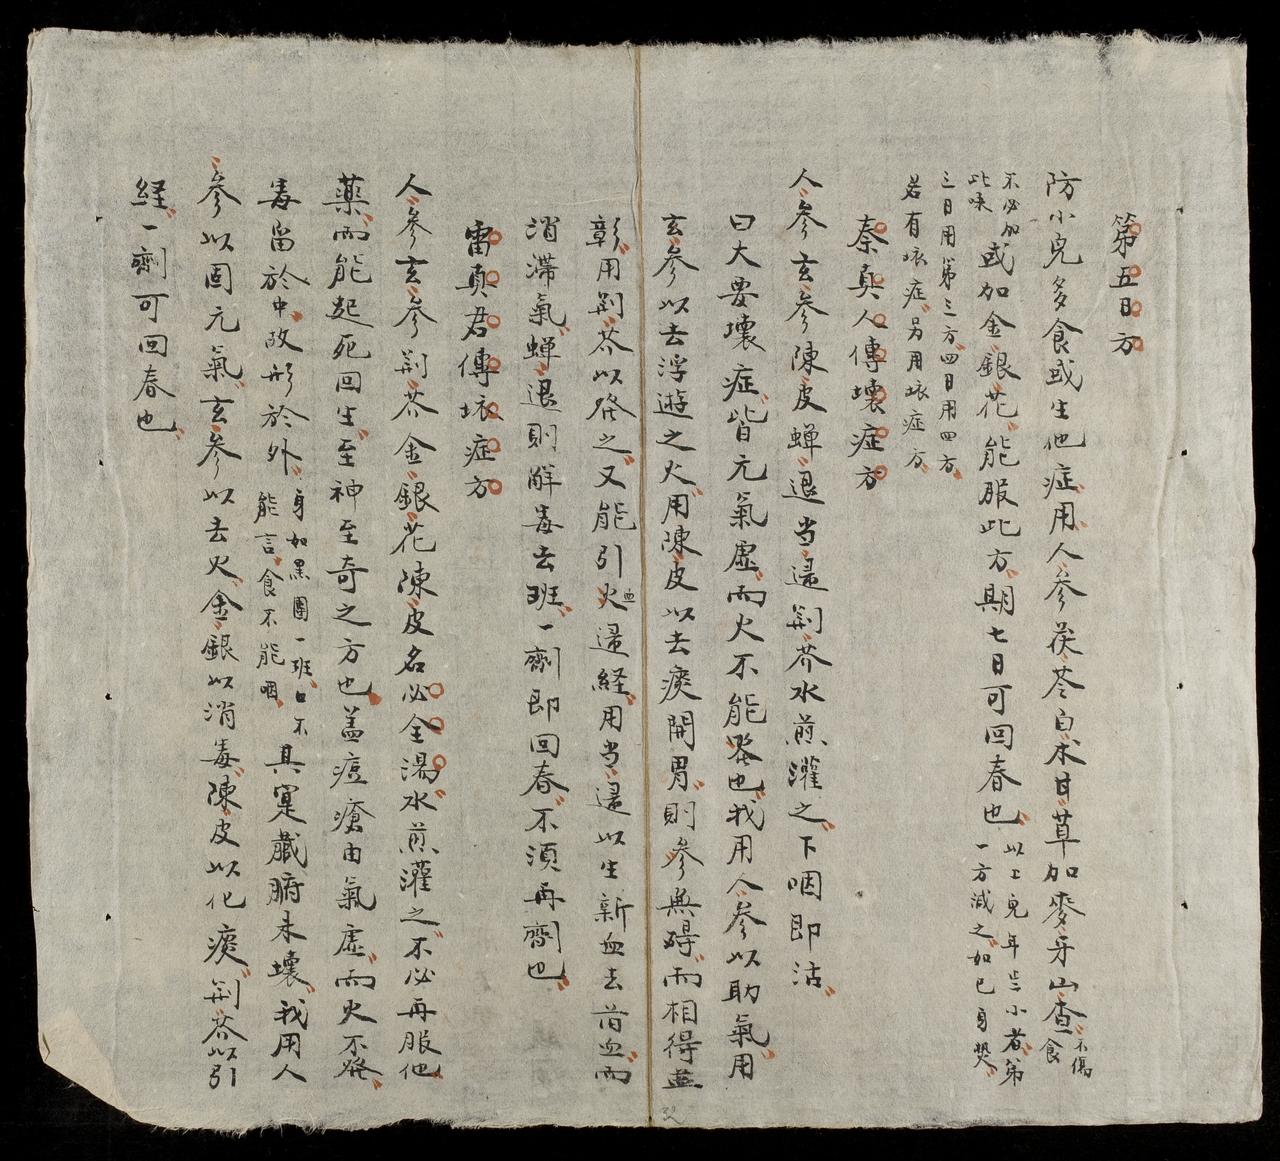 第五日方
防小兒多食或生他症用人參茯苓白朮甘草加麥牙山查不傷食
不必加此味或加金銀花能服此方期七日可回春也以上兒年小者第一方減之如已身熱
三日用第三方四日用四方
若有坏症另用坏症方
秦真人傳壞症方
人參玄參陳皮蟬退当歸荆芥水煎灌之下咽即活
曰大要壞症皆元氣虛而火不能發也我用人參以助氣用
玄參以去浮遊之火用陳皮以去痰開胃則參無碍而相得益
彰用荆芥以發之又能引火血歸経用当歸以生新血去旧血而
消滯氣蟬退則解毒去班一劑即回春不須再劑也
雷真君傳坏症方
人參玄參荆芥金銀花陳皮名必全湯水煎灌之不必再服他
薬而能起死回生至神至奇之方也蓋痘瘡由氣虛而火不發
毒留於中故形於外身如黑團一班口不能言食不能咽其寔臟腑未壞我用人
參以固元氣玄參以去火金銀以消毒陳皮以化痰荆芥以引
経一劑可回春也
32